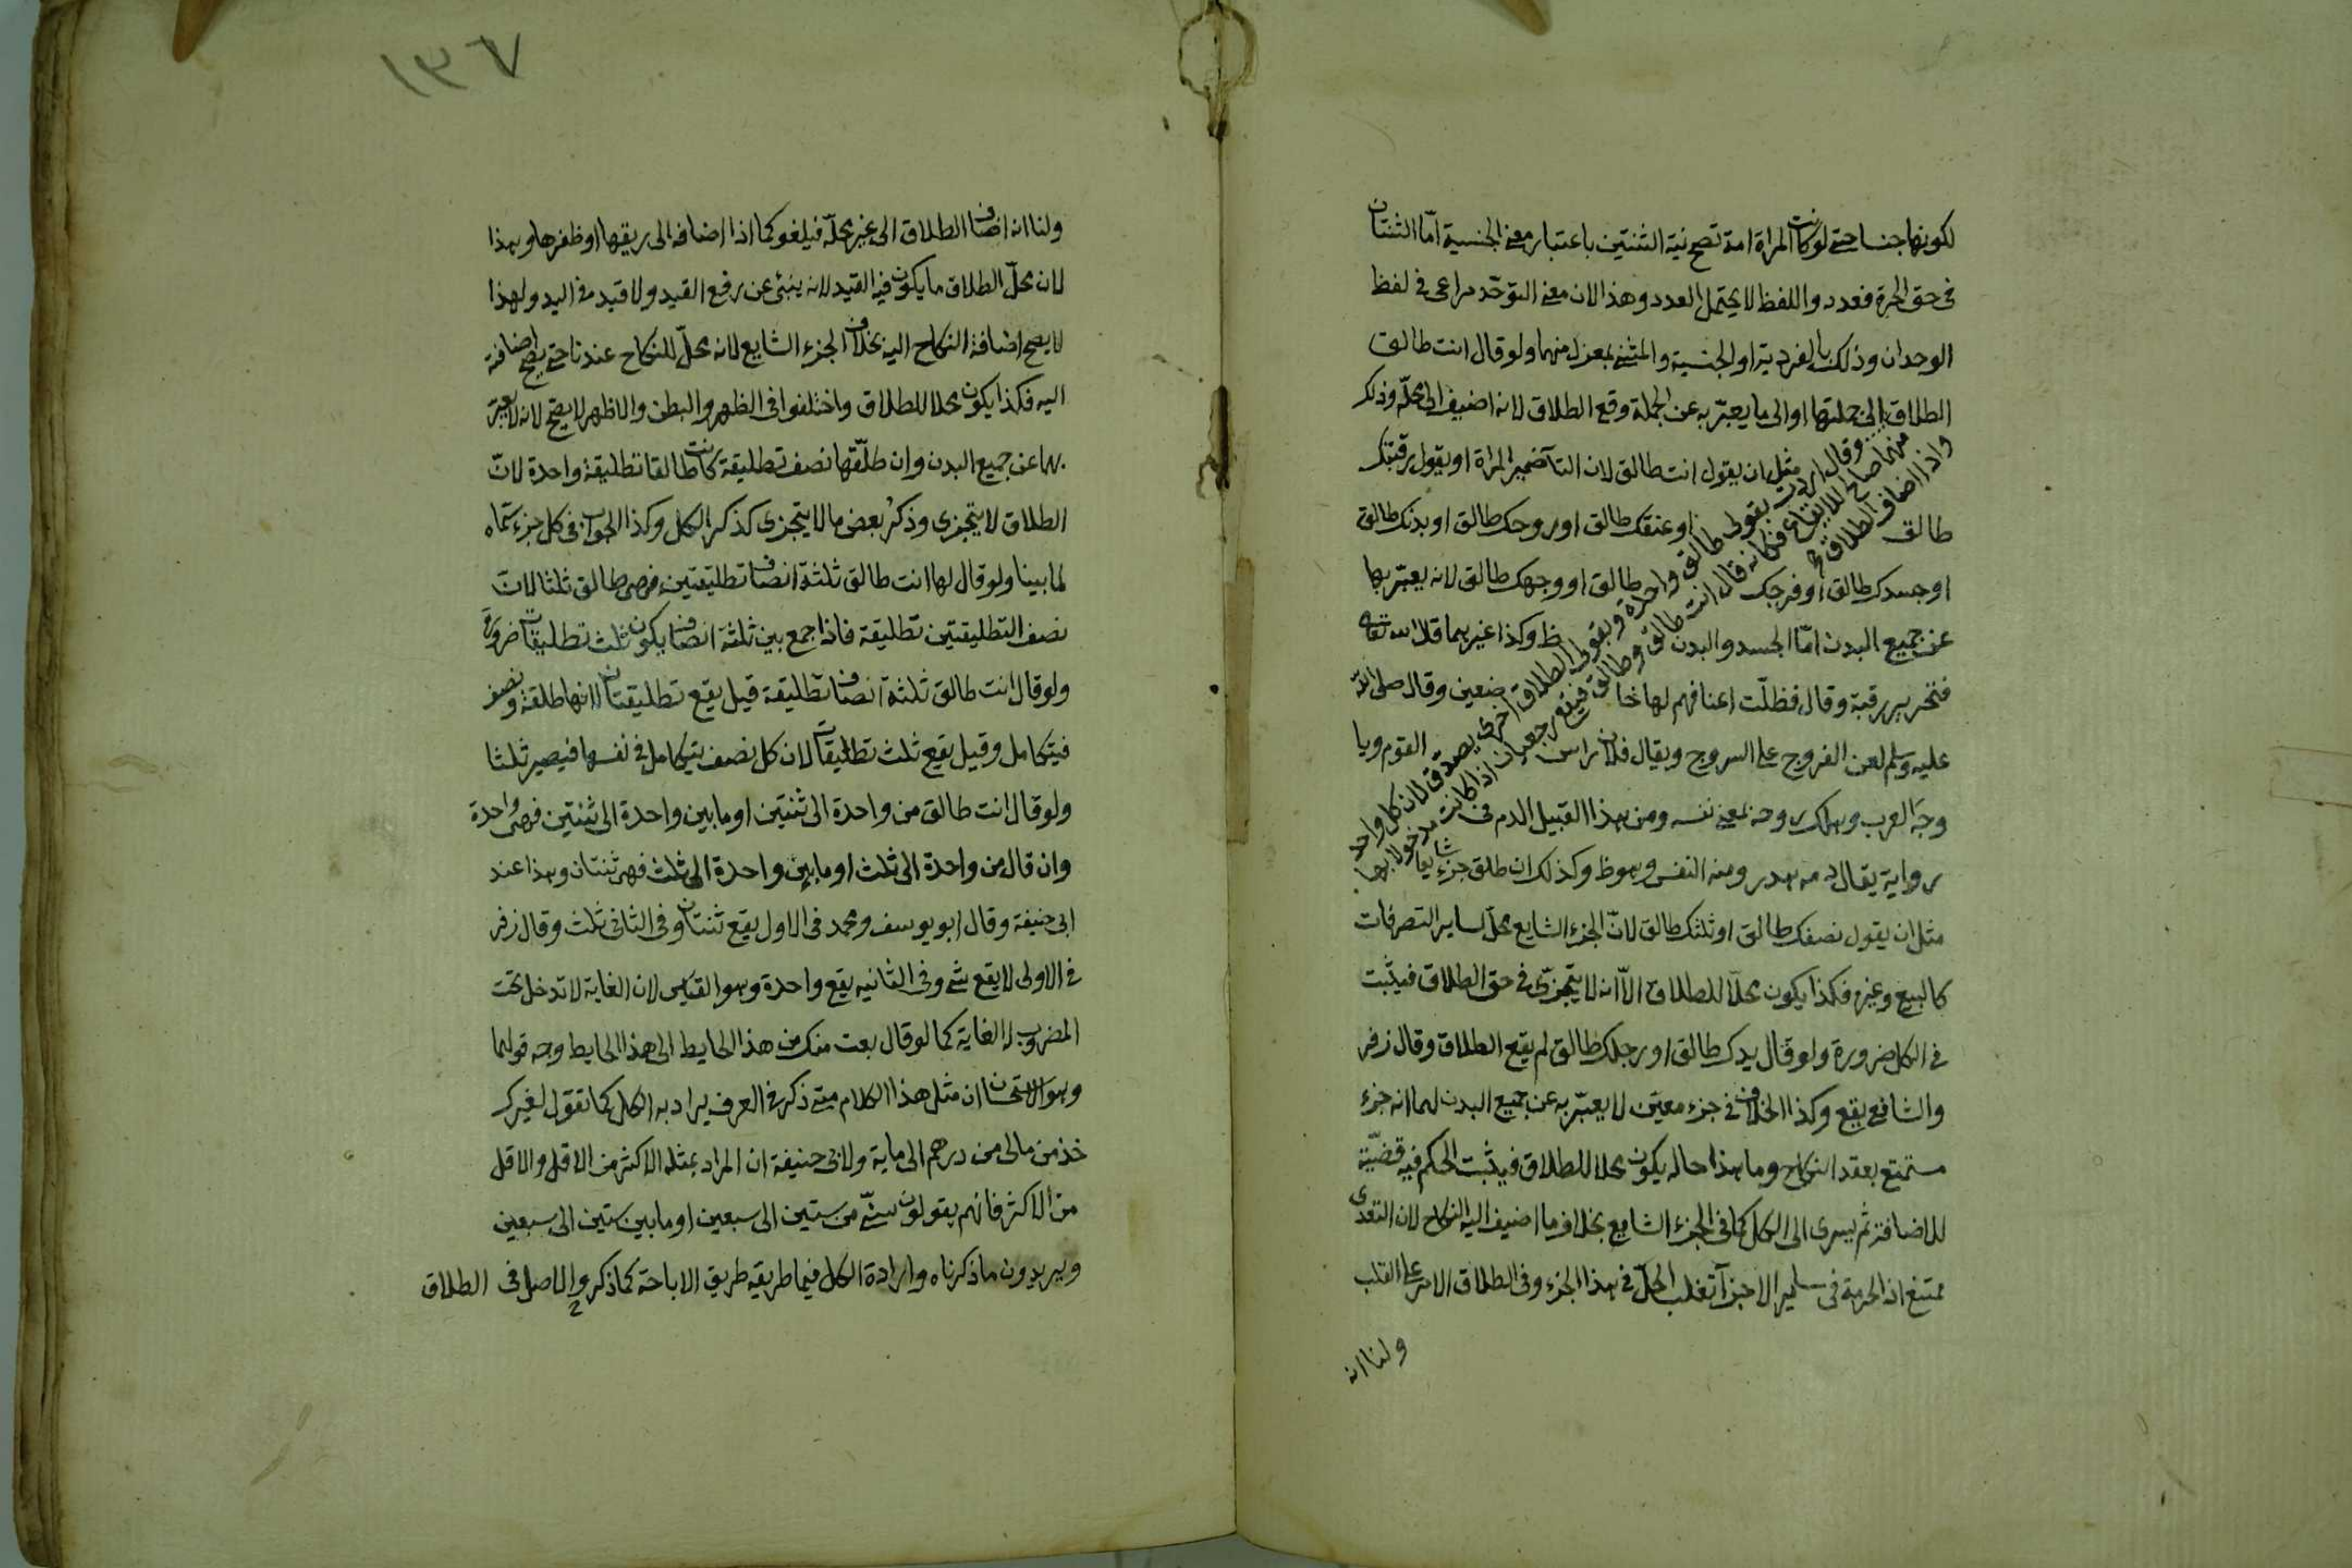 لكونها جنسا حتى لو كانت المراة امة تصح نية الثنتين باعتبار معنى الجنسية امّا الثنتان
فى حق الحرة فعدد واللفظ لا يحتمل العدد وهذا لان معنى التوحّد مراعى فى لفظ
الوحدان وذلك بالفردية او الجنسية والمثنى بمعزل منهما ولو قال انت طالق
الطلاق الى جملتها او الى ما يعبّر به عن الجملة وقع الطلاق لانه اضيف الى محلّه وذلك
مثل ان يقول انت طالق لان التآ ضمير المراة او يقول رقبتك
طالق او عنقك طالق او روحك طالق او بدنك طالق
او جسدك طالق او فرجك طالق او وجهك طالق لانه يعبّر بها
عن جميع البدن امّا الجسد والبدن فظ وكذا غيرهما قال الله تعالى
فتحرير رقبة وقال فظلّت اعناقهم لها خاضعين وقال صلى الله
عليه وسلم لعن الفروج على السروج ويقال فلان راس القوم ويا
وجَه العرب وهلك روحه بمعنى نفسه ومن هذا القبيل الدم فى
رواية يقال دمه هدر ومنه النفس وهو ظ وكذلك ان طلق جزء شايعا
مثل ان يقول نصفك طالق او ثلثك طالق لانّ الجزء الشايع محلّ لساير التصرفات
كالبيع وغيره فكذا يكون محلّا للطلاق الّا انه لا يتجزّى فى حق الطلاق فيثبت
فى الكل ضرورة ولو قال يدك طالق او رجلك طالق لم يقع الطلاق وقال زفر
والشافعى يقع وكذا الخلاف فى جزء معيّن لا يعبّر به عن جميع البدن لهما انه جزء
مستمتع بعقد النكاح وما هذا حاله يكون محلا للطلاق فيثبت الحكم فيه قضيّة
للاضافة ثم يسرى الى الكل كما فى الجزء الشايع بخلاف ما اضيف اليه النكاح لان التعدى
ممتنع اذ الحرمة فى ساير الاجزآ تغلب الحلّ فى هذا الجزء وفى الطلاق الامر على القلب
ولنا انه
وقال اردت بقولى طالق واحدة وبقولى الطلاق اخرى يصدق لان كل واحد
منهما صالح للايقاع فكانه قال انت طالق وطالق فيقع رجعيان اذا كانت مدخولا بها
واذا اضاف الطلاق
١٣٧
ولنا انه اضاف الطلاق الى غير محلّه فيلغو كما اذا اضافه الى ريقها او ظفرها وهذا
لان محلّ الطلاق ما يكون فيه القيد لانه ينبئ عن رفع القيد ولا قيد فى اليد ولهذا
لا يصح اضافة النكاح اليه بخلاف الجزء الشايع لانه محلّ للنكاح عندنا حتى يصح اضافته
اليه فكذا يكون محلا للطلاق واختلفوا فى الظهر والبطن والاظهر لا يصح لانه لا يعبّر
بهما عن جميع البدن وان طلّقها نصف تطليقة كانت طالقا تطليقة واحدة لانّ
الطلاق لا يتجزى وذكرُ بعض ما لا يتجزى كذكر الكل وكذا الجواب فى كل جزء سمّاه
لما بينا ولو قال لها انت طالق ثلثة انصاف تطليقتين فهى طالق ثلثا لان
نصف التطليقتين تطليقة فاذا جمع بين ثلثة انصاف يكون ثلث تطليقات ضرورة
ولو قال انت طالق ثلثة انصاف تطليقة قيل يقع تطليقتان لانها طلقة ونصف
فيتكامل وقيل يقع ثلث تطليقات لان كل نصف يتكامل فى نفسها فيصير ثلثا
ولو قال انت طالق من واحدة الى ثنتين او ما بين واحدة الى ثنتين فهى واحدة
وان قال من واحدة الى ثلث او ما بين واحدة الى ثلث فهى ثنتان وهذا عند
ابى حنيفة وقال ابو يوسف ومحمد فى الاول يقع ثنتان وفى الثانى ثلث وقال زفر
فى الاولى لا يقع شى وفى الثانيه يقع واحدة وهو القياس لان الغاية لا تدخل تحت
المضروب له الغاية كما لو قال بعت منك من هذا الحايط الى هذا الحايط وجه قولهما
وهو الاستحسان ان مثل هذا الكلام متى ذكر فى العرف يراد به الكل كما تقول لغيرك
خذ من مالى من درهم الى ماية ولابى حنيفة ان المراد بمثله الاكثر من الاقل والاقل
من الاكثر فانهم يقولون سنّى من ستين الى سبعين او ما بين ستين الى سبعين
ويريدون ما ذكرناه وارادة الكل فيما طريقه طريق الاباحة كما ذكر والاصل فى الطلاق